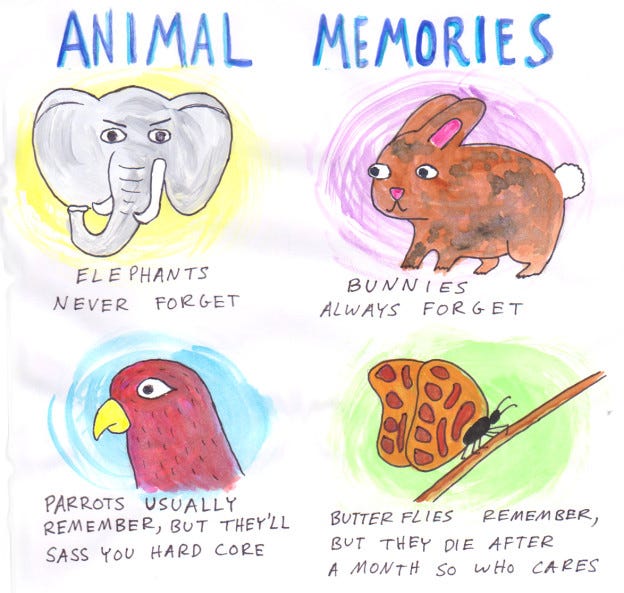 ANIMAL MEMORIES
ELEPHANTS
NEVER FORGET
BUNNIES
ALWAYS FORGET
PARROTS USUALLY
REMEMBER, BUT THEY'LL
SASS YOU HARD CORE
BUTTERFLIES REMEMBER,
BUT THEY DIE AFTER
A MONTH SO WHO CARES